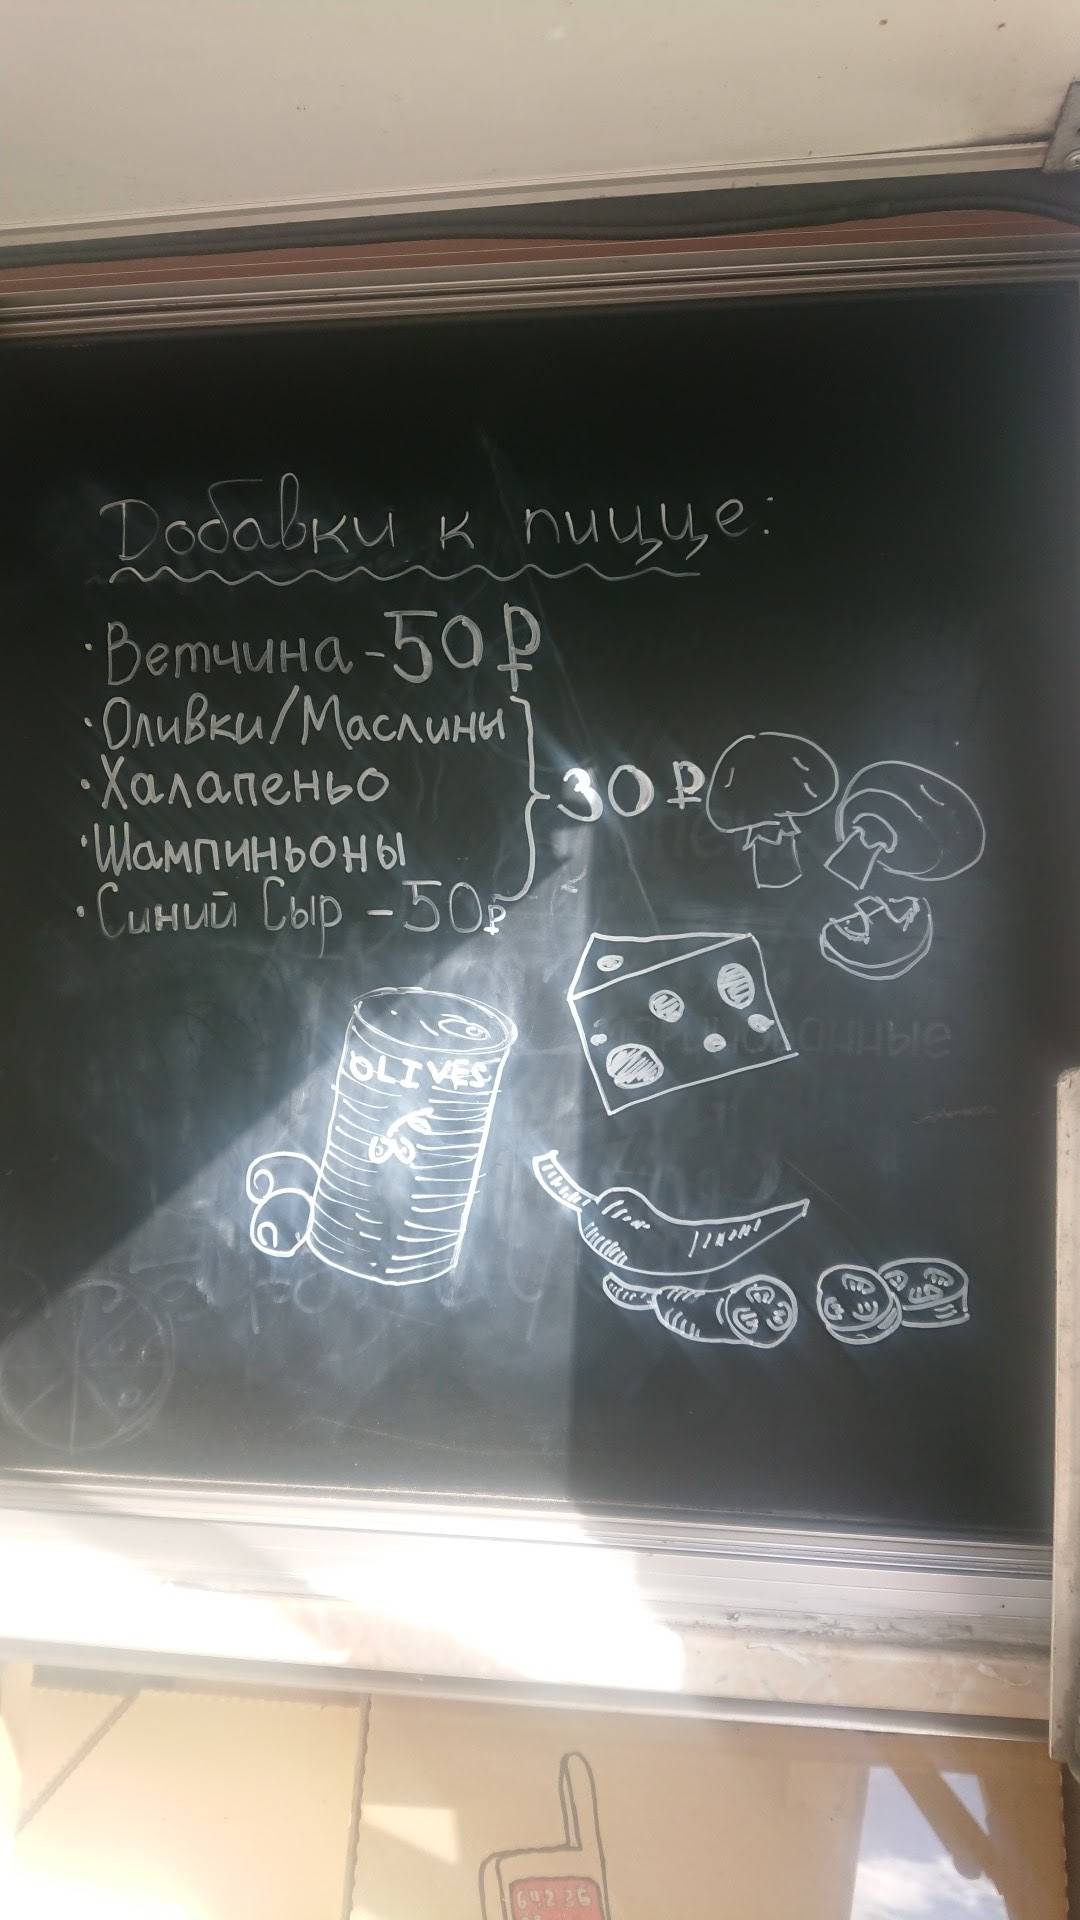 Добавки к пицце:
·Ветчина - 50 ₽
·Оливки/Маслины
·Халапеньо
30 ₽
·Шампиньоны
·Синий Сыр - 50 ₽
OLIVES